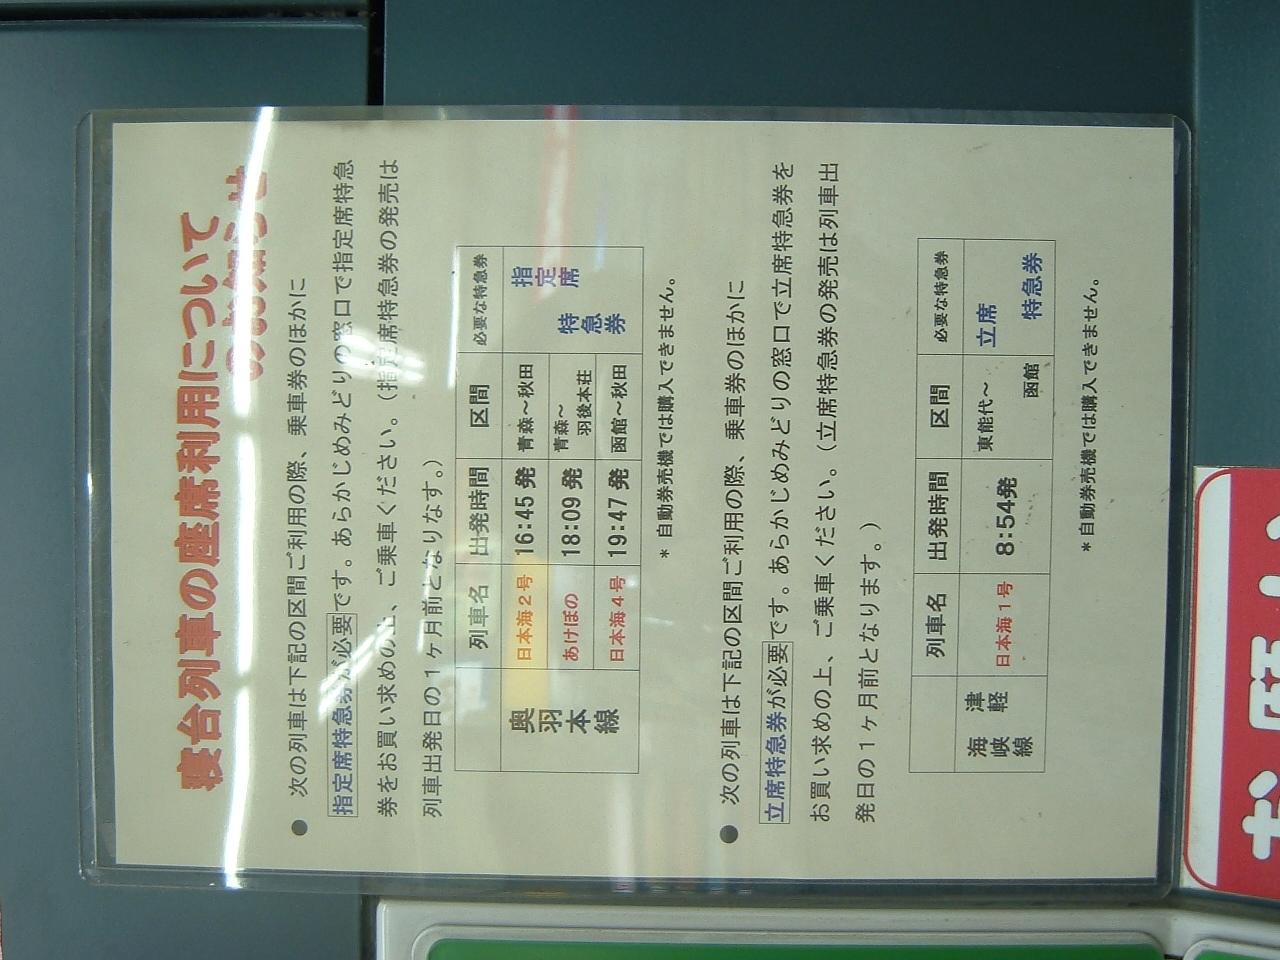 寝台列車の座席利用について
のお知らせ
● 次の列車は下記の区間ご利用の際、乗車券のほかに
指定席特急券が必要です。あらかじめみどりの窓口で指定席特急
券をお買い求めの上、ご乗車ください。（指定席特急券の発売は
列車出発日の１ヶ月前となりなす。）
列車名 出発時間 区間 必要な特急券
奥羽本線
日本海２号 16:45 発 青森～秋田
あけぼの 18:09 発 青森～
羽後本荘
日本海４号 19:47 発 函館～秋田
指定席
特急券
* 自動券売機では購入できません。
● 次の列車は下記の区間ご利用の際、乗車券のほかに
立席特急券が必要です。あらかじめみどりの窓口で立席特急券を
お買い求めの上、ご乗車ください。（立席特急券の発売は列車出
発日の１ヶ月前となります。）
列車名 出発時間 区間 必要な特急券
津軽
海峡線
日本海１号 8:54発 東能代～
函館
立席
特急券
* 自動券売機では購入できません。
お願い